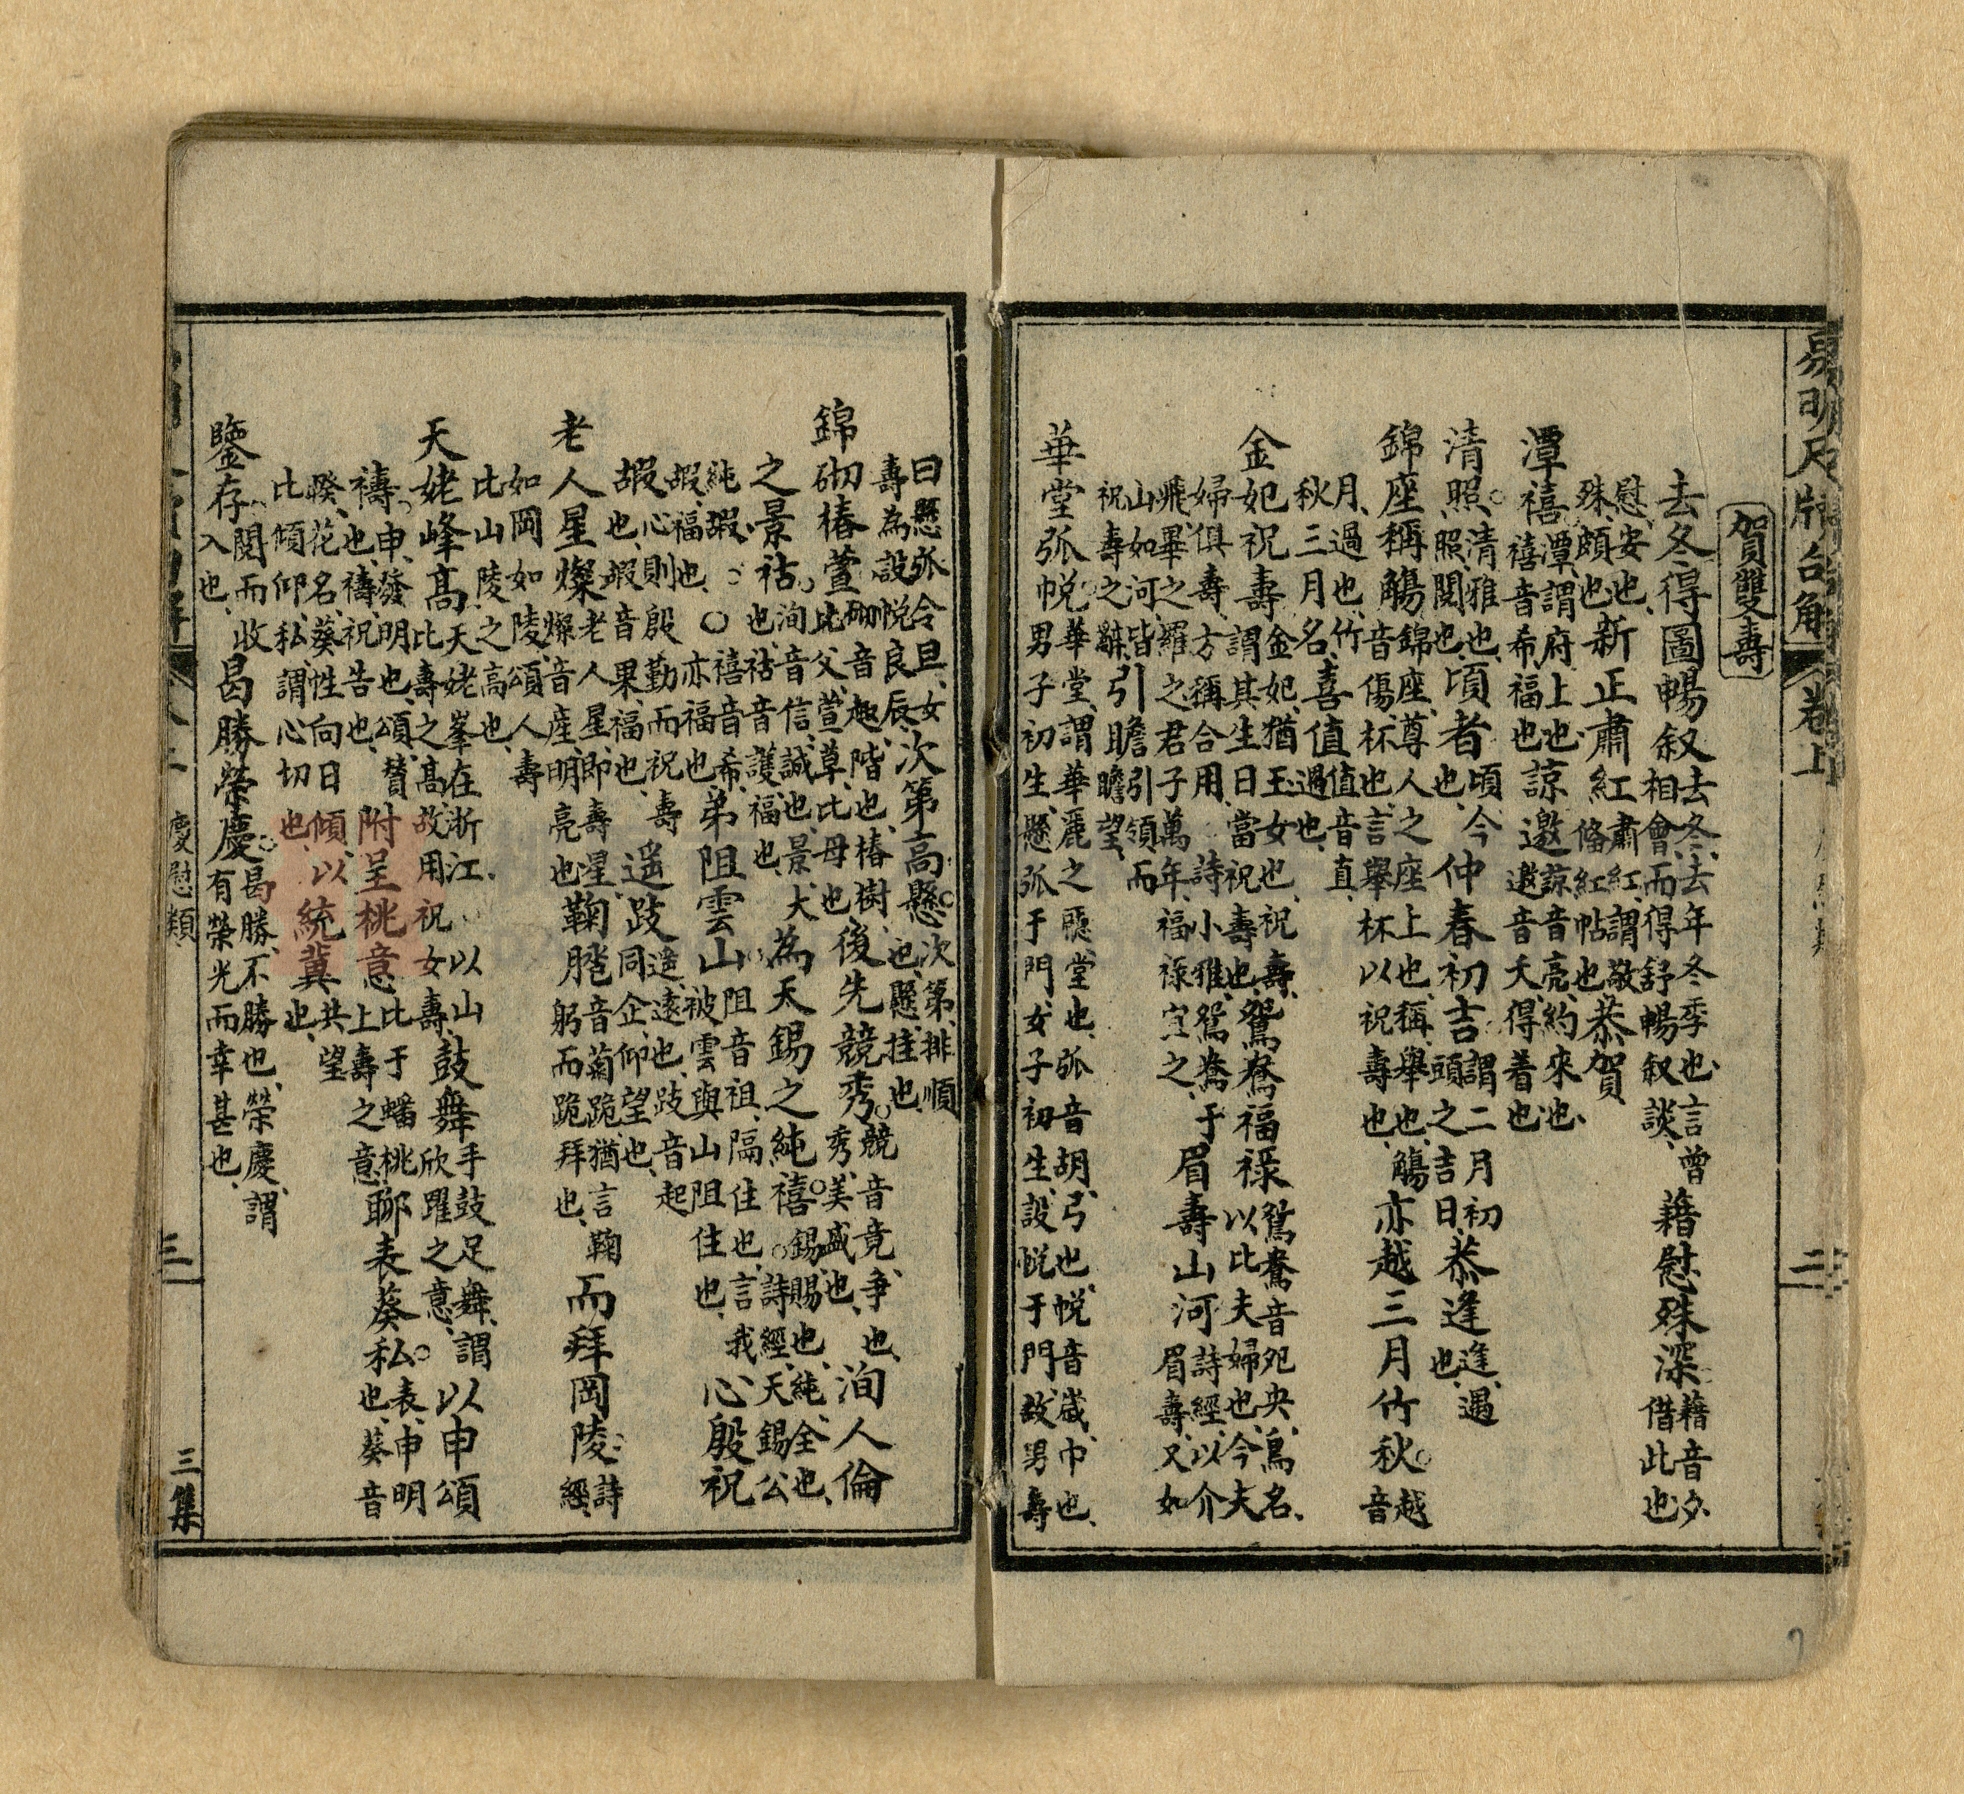 易明尺牘句解 卷上 二
賀雙壽
去冬得圖暢叙去冬、去年冬季也、言曾相會、而得舒暢叙談、藉慰殊深藉音夕、借此也、
慰、安也、殊、頗也、新正肅紅肅紅、謂敬俻紅帖也、恭賀
潭禧潭、謂府上也、禧音希、福也、諒邀諒音亮、約來也、邀音夭、得着也、
清照。清、清雅也、照、照閱也、頃者頃、今也、仲春初吉謂二月初頭之吉日、恭逢逢、遇也、
錦座稱觴錦座、尊人之座上也、稱、舉也、觴音傷、杯也、言舉杯以祝壽也、亦越三月竹秋。越音
月、過也、竹秋、三月名、喜值值音直、過也、
金妃祝壽金妃、猶玉女也、祝壽、謂其生日當祝壽也、鴛鴦福祿鴛鴦音夗央、鳥名、以比夫婦也、今夫
婦俱壽、方稱合用、詩小雅、鴛鴦于飛、畢之羅之、君子萬年、福祿宜之、眉壽山河詩經、以介眉壽、又如
山如河、皆祝壽之辭、引瞻引、引領而瞻、瞻望、
華堂弧帨華堂、謂華麗之廳堂也、弧音胡、弓也、帨音歲、巾也、男子初生、懸弧于門、女子初生、設帨于門、故男壽
曰懸弧令旦、女壽為設帨良辰、次第高懸。次第、排順也、懸、挂也、
錦砌椿萱砌音趣、階也、椿樹、比父、萱草、比母也、後先競秀。競音竟、爭也、秀、美盛也、洵人倫
之景祜。洵音信、誠也、景、大也、祜音護、福也、為天錫之純禧。錫、賜也、純、全也、詩經、天錫公
純嘏、〇禧音希、福也、嘏亦福也、弟阻雲山阻音祖、隔住也、言我被雲與山阻住也、心殷祝
嘏心則殷勤而祝壽也、嘏音果、福也、遙跂遙、遠也、跂音起同企、仰望也、
老人星燦老人星、即壽星、燦音產、明亮也、鞠跽音菊跪、猶言鞠躬而跪拜也、而拜岡陵詩經、
如岡如陵、頌人壽比山陵之高也、
天姥峰高天姥峯在浙江、以山比壽之高、故用祝女壽、鼓舞手鼓足舞、謂欣躍之意、以申頌
禱。申、發明也、頌、贊也、禱、祝告也、附呈桃意比于蟠桃上壽之意、聊表葵私。表、申明也、葵音
暌、花名、葵性向日傾、以比傾仰私、謂心切也、統冀共望也、
鑒存、閱而收入也、曷勝榮慶。曷勝、不勝也、榮慶、謂有榮光而幸甚也、
慶慰類 三 三集